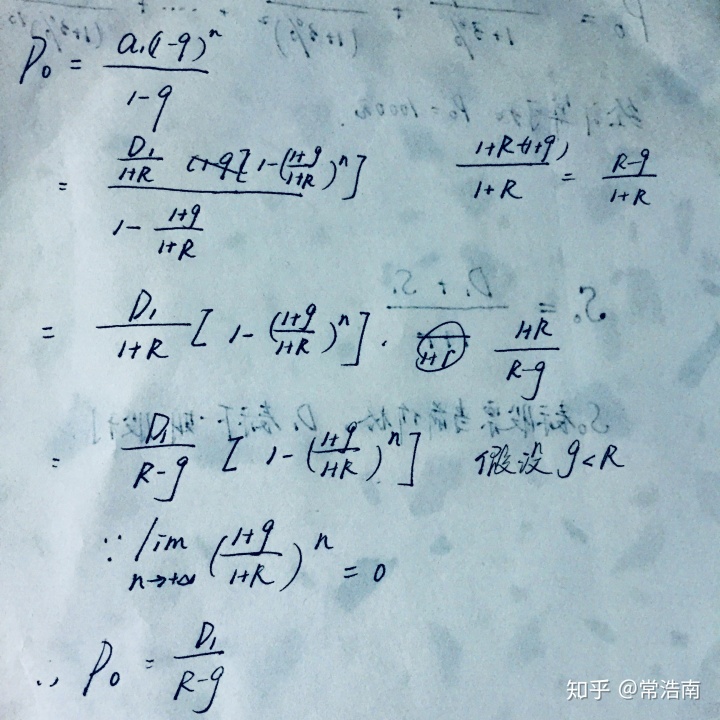 P₀ = a₁(1-q)ⁿ / 1-q
= D₁/(1+R) [1-((1+g)/(1+R))ⁿ] / 1 - (1+g)/(1+R)    1+R-(1+g) / 1+R = R-g / 1+R
= D₁/(1+R) [1-((1+g)/(1+R))ⁿ] · (1+R)/(R-g)
= D₁/(R-g) [1-((1+g)/(1+R))ⁿ] 假设 g<R
∵ lim n→+∞ ((1+g)/(1+R))ⁿ = 0
∴ P₀ = D₁/(R-g)
知乎 @常浩南